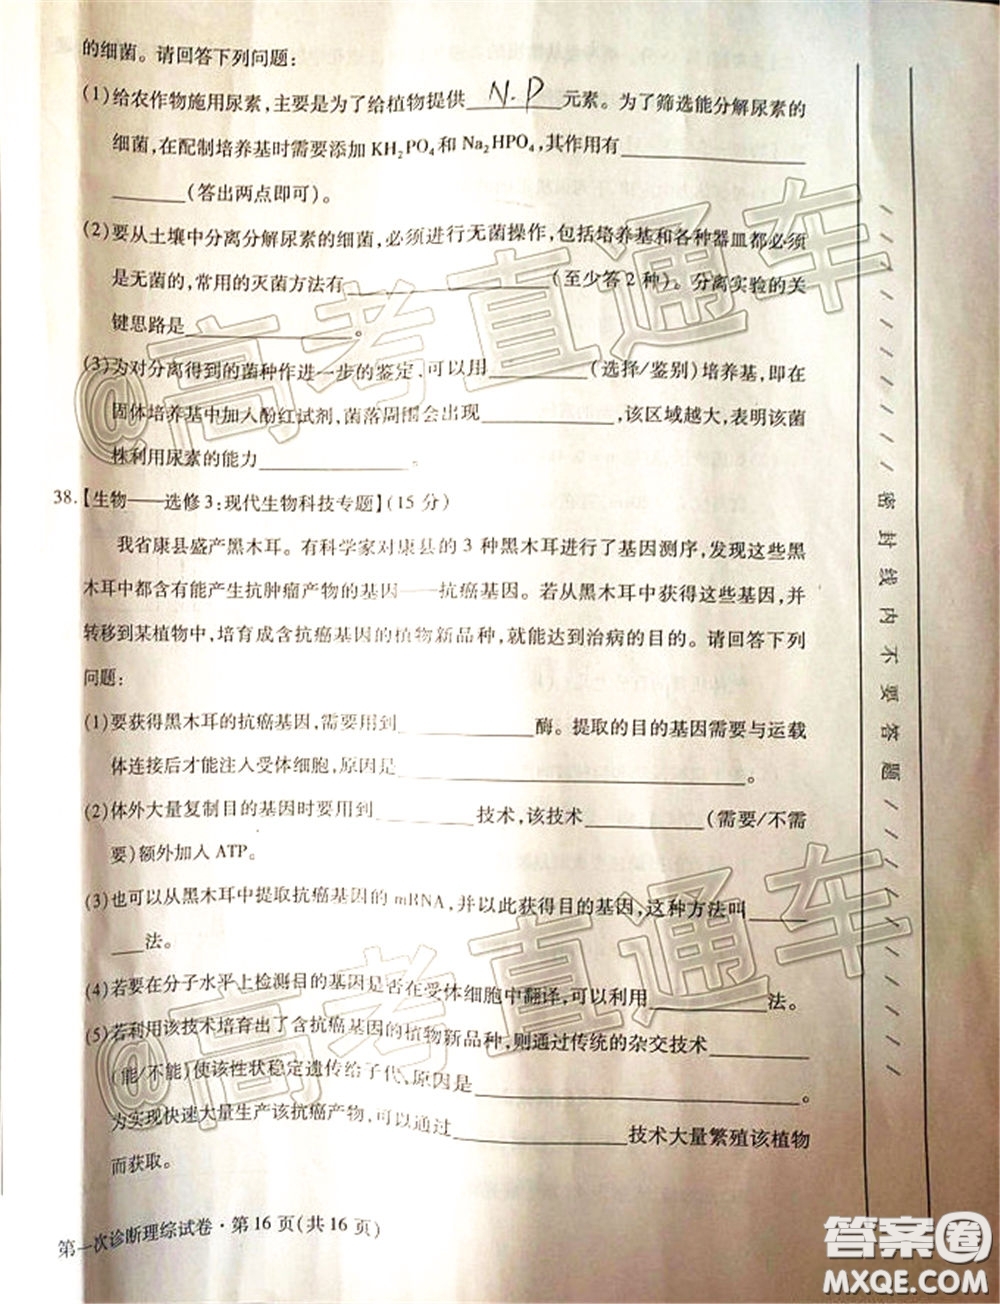 的细菌。请回答下列问题:
(1)给农作物施用尿素,主要是为了给植物提供 N.P 元素。为了筛选能分解尿素的
细菌,在配制培养基时需要添加KH₂PO₄和Na₂HPO₄,其作用有____
____(答出两点即可)。
(2)要从土壤中分离分解尿素的细菌,必须进行无菌操作,包括培养基和各种器皿都必须
是无菌的,常用的灭菌方法有____(至少答2种)。分离实验的关
键思路是____。
(3)为对分离得到的菌种作进一步的鉴定,可以用____(选择/鉴别)培养基,即在
固体培养基中加入酚红试剂,菌落周围会出现____,该区域越大,表明该菌
株利用尿素的能力____。
38.【生物——选修3:现代生物科技专题】(15分)
我省康县盛产黑木耳。有科学家对康县的3种黑木耳进行了基因测序,发现这些黑
木耳中都含有能产生抗肿瘤产物的基因——抗癌基因。若从黑木耳中获得这些基因,并
转移到某植物中,培育成含抗癌基因的植物新品种,就能达到治病的目的。请回答下列
问题:
(1)要获得黑木耳的抗癌基因,需要用到____酶。提取的目的基因需要与运载
体连接后才能注入受体细胞,原因是____。
(2)体外大量复制目的基因时要用到____技术,该技术____(需要/不需
要)额外加入ATP。
(3)也可以从黑木耳中提取抗癌基因的mRNA,并以此获得目的基因,这种方法叫____
____法。
(4)若要在分子水平上检测目的基因是否在受体细胞中翻译,可以利用____法。
(5)若利用该技术培育出了含抗癌基因的植物新品种,则通过传统的杂交技术____
(能/不能)使该性状稳定遗传给子代,原因是____。
为实现快速大量生产该抗癌产物,可以通过____技术大量繁殖该植物
而获取。
第一次诊断理综试卷·第16页(共16页)
密封线内不要答题
@高考直通车
@高考直通车
答案圈
MXQE.COM